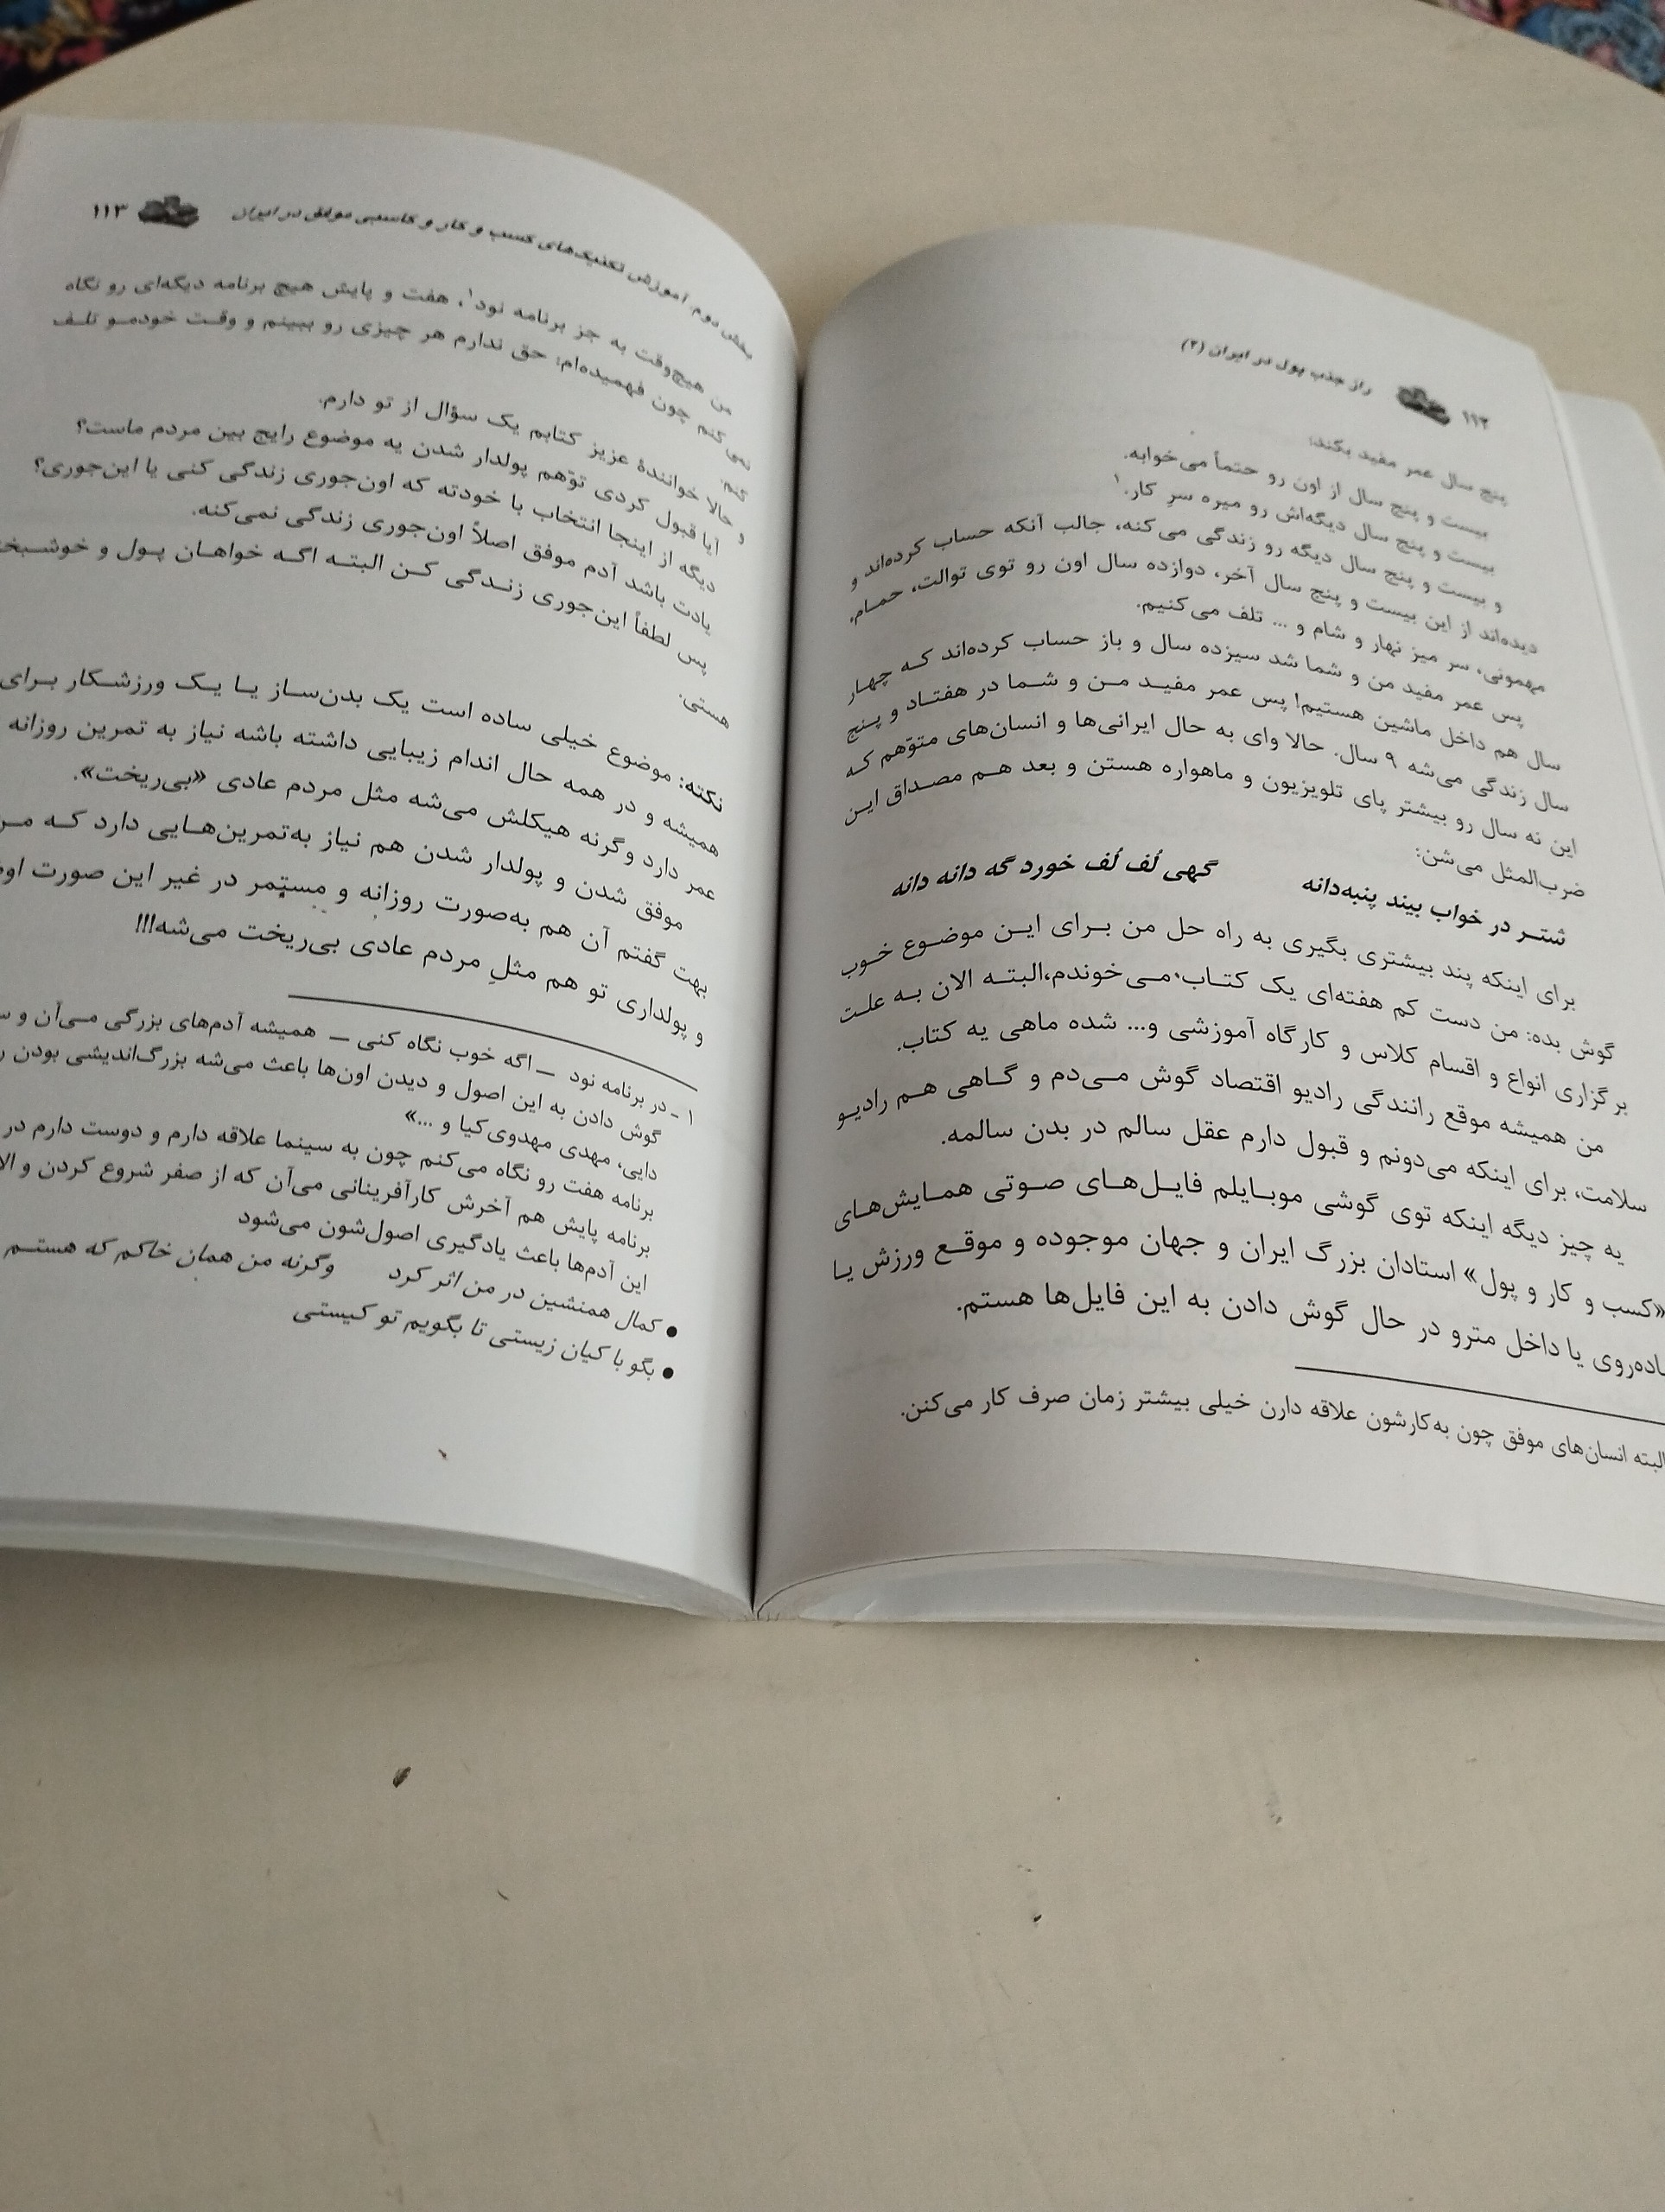 ۱۱۲ راز جذب پول در ایران (۲)
پنج سال عمر مفید بکند:
بیست و پنج سال از اون رو حتماً می‌خوابه.
بیست و پنج سال دیگه‌اش رو میره سرِ کار.۱
و بیست و پنج سال دیگه رو زندگی می‌کنه، جالب آنکه حساب کرده‌اند و
دیده‌اند از این بیست و پنج سال آخر، دوازده سال اون رو توی توالت، حمام،
مهمونی، سر میز نهار و شام و ... تلف می‌کنیم.
پس عمر مفید من و شما شد سیزده سال و باز حساب کرده‌اند که چهار
سال هم داخل ماشین هستیم! پس عمر مفید من و شما در هفتاد و پنج
سال زندگی می‌شه ۹ سال. حالا وای به حال ایرانی‌ها و انسان‌های متوّهم که
این نه سال رو بیشتر پای تلویزیون و ماهواره هستن و بعد هم مصداق این
ضرب‌المثل می‌شن:
شتر در خواب بیند پنبه‌دانه گهی لُف لُف خورد گه دانه دانه
برای اینکه پند بیشتری بگیری به راه حل من برای این موضوع خوب
گوش بده: من دست کم هفته‌ای یک کتاب می‌خوندم،البته الان به علت
برگزاری انواع و اقسام کلاس و کارگاه آموزشی و... شده ماهی یه کتاب.
من همیشه موقع رانندگی رادیو اقتصاد گوش می‌دم و گاهی هم رادیو
سلامت، برای اینکه می‌دونم و قبول دارم عقل سالم در بدن سالمه.
یه چیز دیگه اینکه توی گوشی موبایلم فایل‌های صوتی همایش‌های
«کسب و کار و پول» استادان بزرگ ایران و جهان موجوده و موقع ورزش یا
یا داخل مترو در حال گوش دادن به این فایل‌ها هستم.
البته انسان‌های موفق چون به‌کارشون علاقه دارن خیلی بیشتر زمان صرف کار می‌کنن.
بخش دوم: آموزش تکنیک‌های کسب و کار و کاسبی موفق در ایران ۱۱۳
من هیچ‌وقت به جز برنامه نود۱، هفت و پایش هیچ برنامه دیگه‌ای رو نگاه
نمی‌کنم چون فهمیده‌ام: حق ندارم هر چیزی رو ببینم و وقت خودمو تلف
کنم.
و حالا خوانندهٔ عزیز کتابم یک سؤال از تو دارم.
آیا قبول کردی توّهم پولدار شدن یه موضوع رایج بین مردم ماست؟
دیگه از اینجا انتخاب با خودته که اون‌جوری زندگی کنی یا این‌جوری؟
یادت باشد آدم موفق اصلاً اون‌جوری زندگی نمی‌کنه.
پس لطفاً این‌جوری زندگی کن البته اگه خواهان پول و
هستی.
نکته: موضوع خیلی ساده است یک بدن‌ساز یا یک ورزشکار برای
همیشه و در همه حال اندام زیبایی داشته باشه نیاز به تمرین روزانه
عمر دارد وگرنه هیکلش می‌شه مثل مردم عادی «بی‌ریخت».
موفق شدن و پولدار شدن هم نیاز به‌تمرین‌هایی دارد که
بهت گفتم آن هم به‌صورت روزانه و مستمر در غیر این صورت
و پولداری تو هم مثلِ مردم عادی بی‌ریخت می‌شه!!!
۱ ـ در برنامه نود ــ اگه خوب نگاه کنی ــ همیشه آدم‌های بزرگی می‌آن و
گوش دادن به این اصول و دیدن اون‌ها باعث می‌شه بزرگ‌اندیشی بودن
دایی، مهدی مهدوی‌کیا و ...»
برنامه هفت رو نگاه می‌کنم چون به سینما علاقه دارم و دوست دارم در
برنامه پایش هم آخرش کارآفرینانی می‌آن که از صفر شروع کردن و
این آدم‌ها باعث یادگیری اصول‌شون می‌شود
● کمال همنشین در من اثر کرد وگرنه من همان خاکم که هستم
● بگو با کیان زیستی تا بگویم تو کیستی